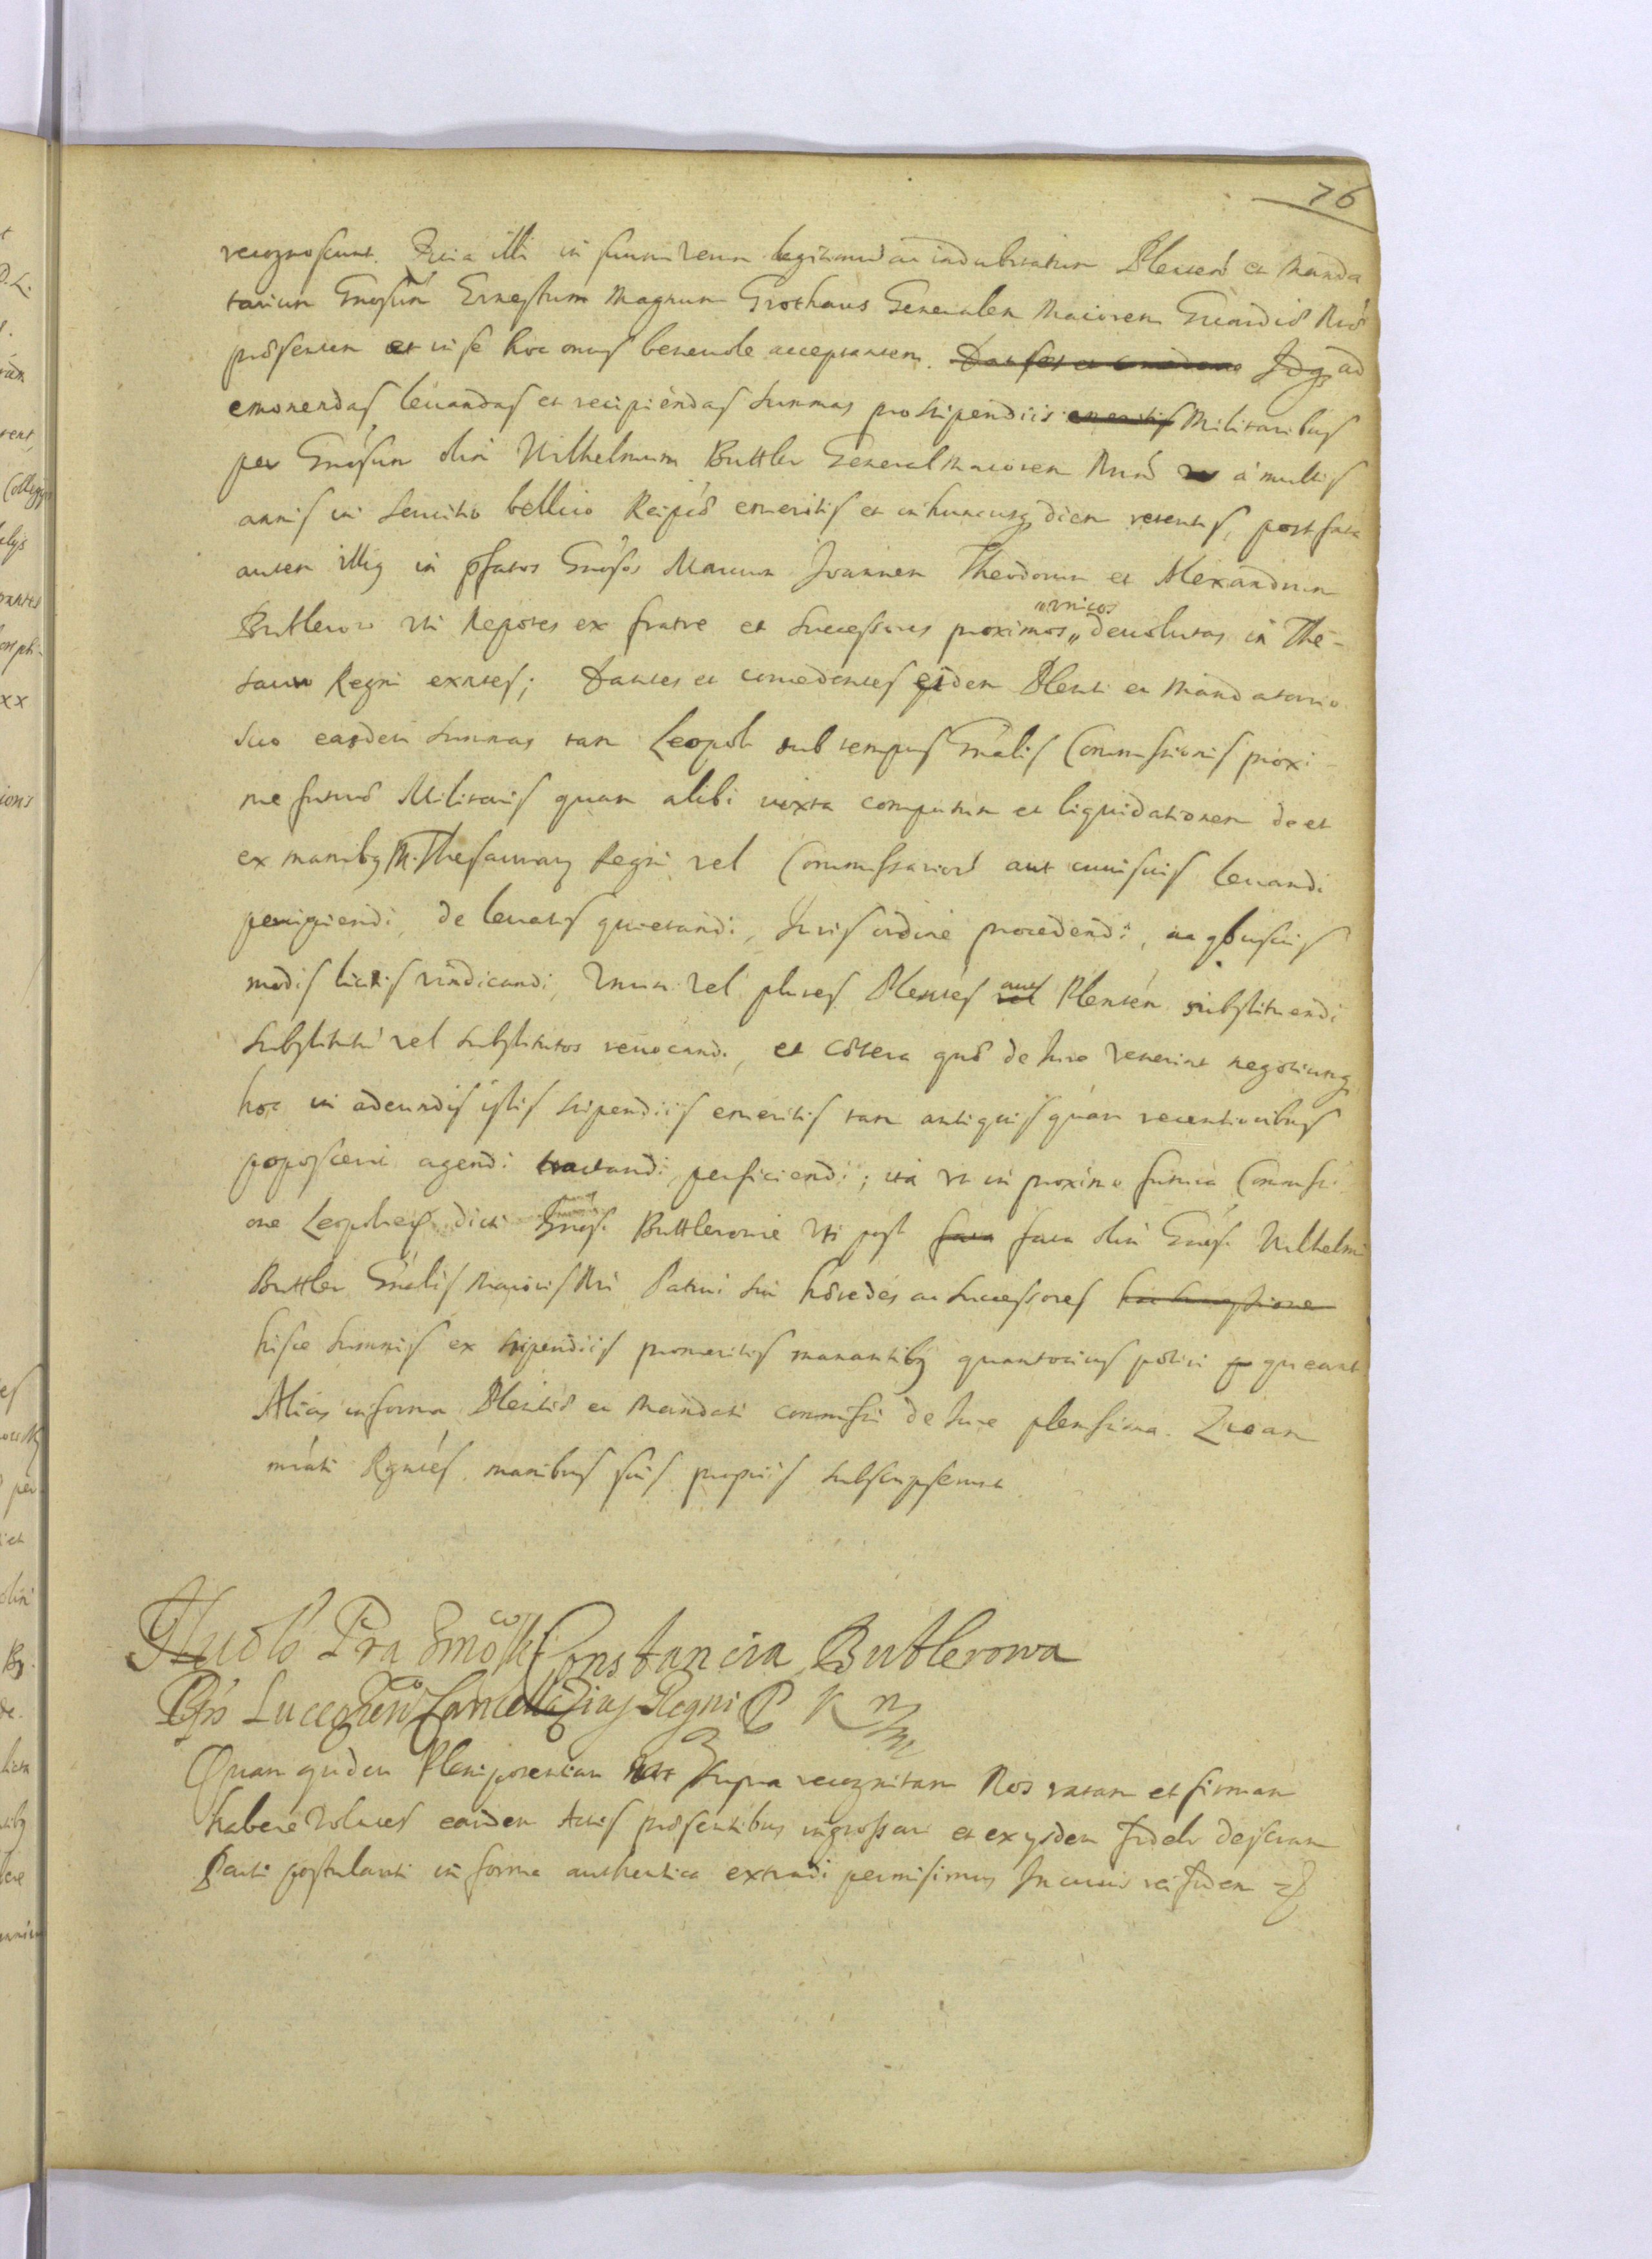 76
recognoscunt. Quia illi in suum verum legitimum ac indubitatum Plenten et Manda
tarium Gnosum Ernestum Magnum Grothaus Generalem Maiorem Guardiæ Rnæ
præsentem et in se hoc onus benevole acceptantem. Idq ad
emonendas levandas et recipiendas summas pro stipendiis emeritis Militaribus
per Gnosum olim Wilhelmum Buttler General Maiorem Rnum à multis
annis in servitio bellico Reipcæ emeritis et in huncusq diem retentis, post fata
autem illius in pfatos Gnosos Marcum Joannem Theodorum et Alexandrum
Butlerow uti Nepotes ex fratre et Successores proximos "unicos" devolutas in The-
sauro Regni extntes; Dantes et concedentes eidem Plenti et Mandatario
suo easdem summas tam Leopoli sub tempus Gnalis Commissionis proxi-
me futuræ Militaris quam alibi iuxta computum et liquidationem de et
ex manibq M. Thesaurarij Regni vel Commissariorum aut cuiusuis levandi
percipiendi, de levatis quietandi, Iuris ordine procedendi, ac qbusuis
modis licitis vindicandi, Unum vel plures Plentes vel aut Plentem substituendi
substitutum vel substitutos revocandi, et cætera quæ de Iure venerint negotiumq
hoc in adeundis istis stipendiis emeritis tam antiquis quam recentioribus
poposcerit agendi tractandi perficiendi; ita ut in proxime futura Commissi
one Leopoliensi dicti Gnosi Buttlerowie uti post fata fata olim Gnosi Wilhelmi
Buttler Gnalis Maioris Rni Patrui sui hæredes ac successores
hisce summis ex stipendiis promeritis manantibq quantocius potiri queant
Alias in forma Plentiæ et Mandati commissi de Iure plenissima. Quam
mrati Rgntes manibus suis propriis subscripserunt
Constancia Butlerowa
Eps Luceorien Cancellarius Regni P K
Quam quidem Plenipotentiam supra recognitam Nos ratam et firmam
habere volentes eandem Actis præsentibus ingrossari et ex ijsdem fideliter descriptam
Parti postulanti in forma authentica extradi permisimus In cuius rei fidem